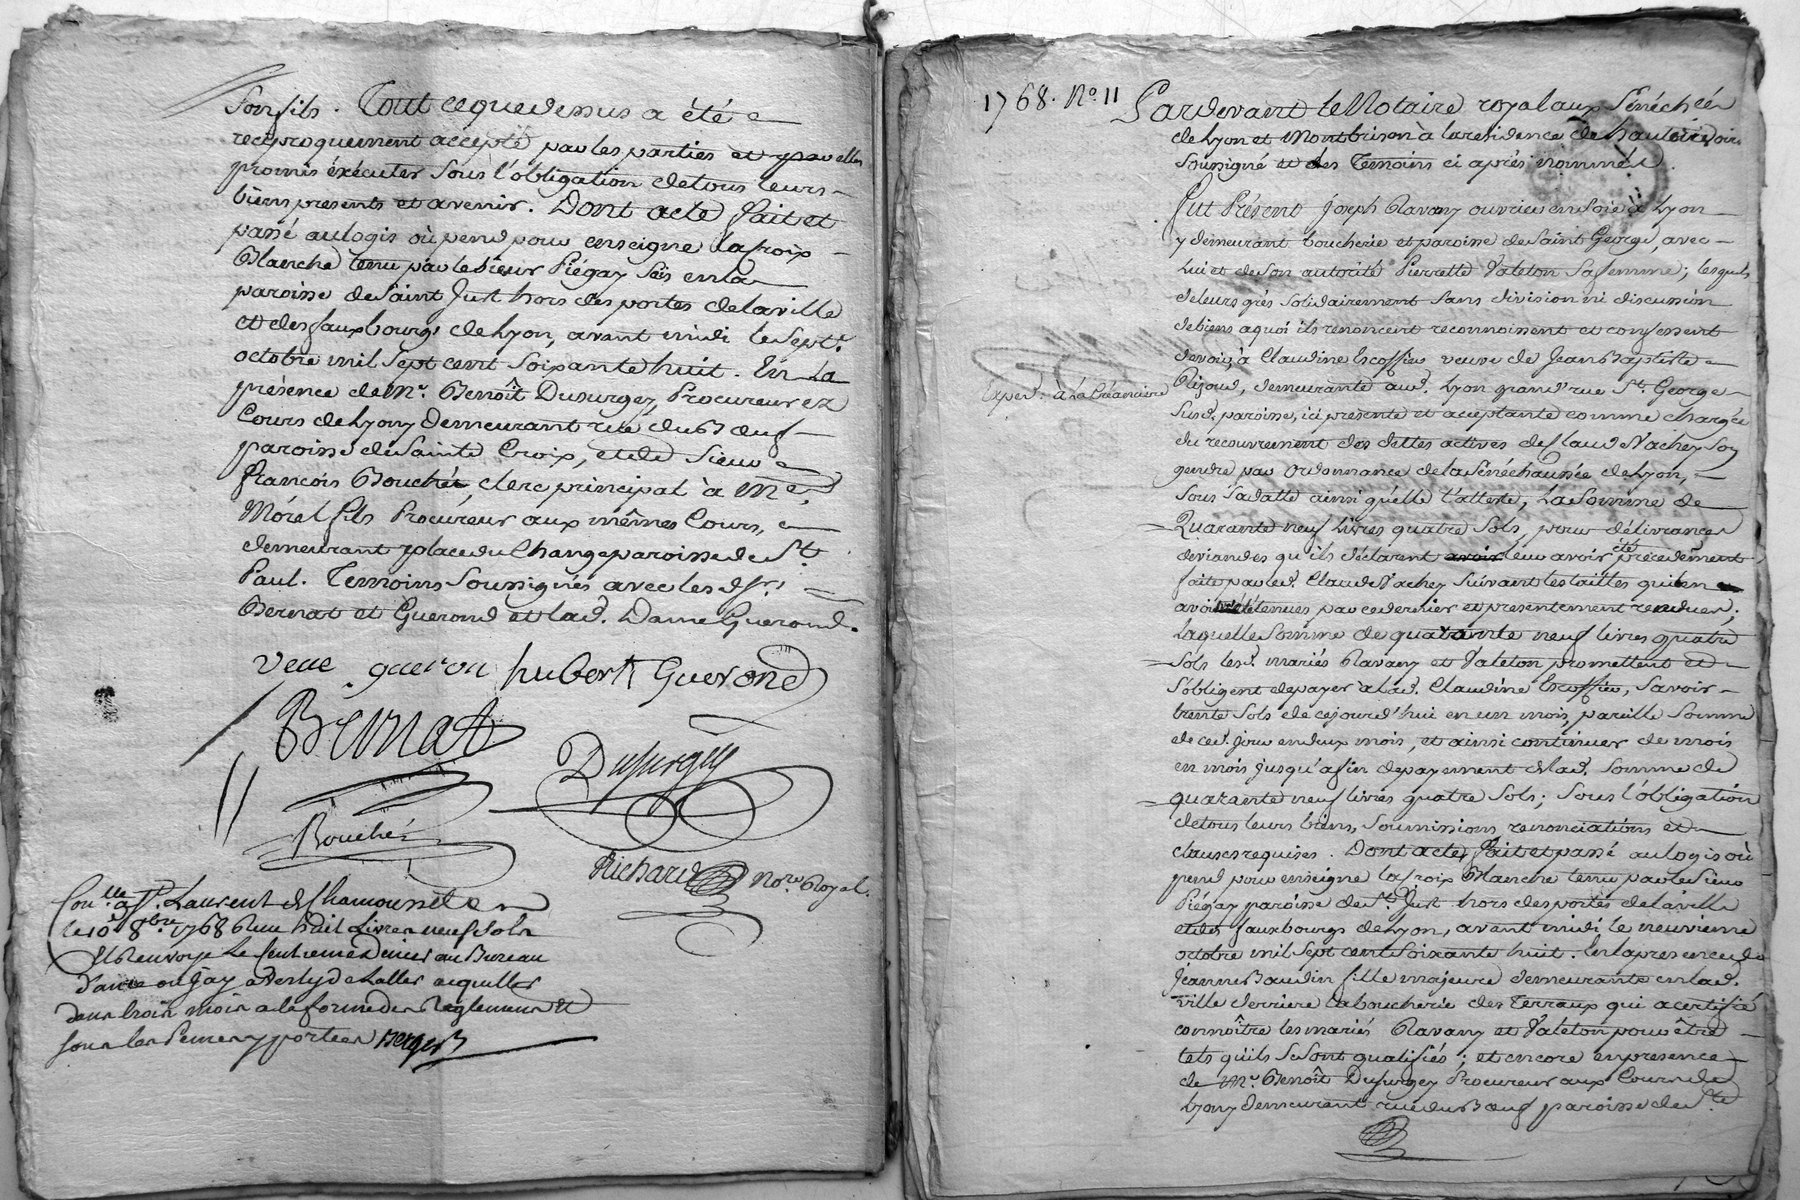 Son fils. Tout ce que dessus a été
réciproquement accépté par les parties et par elles
promis éxécuter sous l'obligation de tous leurs
biens presents et avenir. Dont acte fait et
passé au logis où pend pour enseigne la croix
Blanche tenu par le sieur Piégay sis en la
paroisse de Saint Just hors des portes de la ville
et des fauxbourgs de Lyon, avant midi le sept.
octobre mil sept cent soixante huit. En la
présence de Mr. Benoît Dusurgey, Procureur ez
Cours de Lyon, demeurant rue du Bœuf
paroisse de Sainte Croix, et de Sieur
françois Bouché, clerc principal à Me.
Morel fils Procureur aux mêmes Cours,
demeurant place du Change paroisse de St.
Paul. Temoins soussignés avec les dsrs.
Bernat et Guerond et lad. Dame Guerond.
veue gueron hubert Guerond
Bernat
Dusurgey
Bouché
Richard Nore. Royal.
Conlle. à St. Laurent de Chamousset
le 10 8bre. 1768 Reçu huit Livres neuf sols
et renvoyé le centieme denier au Bureau
dans trois mois a la forme des Reglemens et
sous les Peines y portées Berger
1768. No. 11
Pardevant le Notaire royal aux Sénéchées
de Lyon et Montbrison à la residence de hauterivoire
soussigné et des Temoins ci après nommés.
Fut Présent Joseph Ravany ouvrier en soie à Lyon
y demeurant boucherie et paroisse de Saint George, avec
lui et de son autorité Pierrette Valeton sa femme; lesquels
de leurs grés solidairement sans division ni discussion
de biens a quoi ils renoncent reconnoissent et confessent
devoir à Claudine Escoffier veuve de Jean Baptiste
Réjoud, demeurante aud. Lyon grand'rue St. George
Exped. à la Créanciere
susd. paroisse, ici présente et aceptante comme chargée
du recouvrement des dettes actives de Claud Vachez son
gendre par ordonnance de la Sénéchaussée de Lyon,
sous sa datte ainsi qu'elle l'atteste, La somme de
Quarante neuf livres quatre sols, pour délivrances
de viandes qu'ils déclarent avoir leur avoir été précédemment
faite par led. Claude Vachez suivant les tailles qui en
avoient été tenues par ce dernier et presentement rendues;
Laquelle somme de quarante neuf livres quatre
sols lesd. mariés Ravany et Valeton promettent et
s'obligent de payer à lad. Claudine Escoffier, savoir
trente sols de cejourd'hui en un mois, pareille somme
de ced. jour en deux mois, et ainsi continuer de mois
en mois jusqu'a fin de payement de lad. somme de
quarante neuf livres quatre sols; sous l'obligation
de tous leurs biens, soumissions renonciations et
clauses requises. Dont acte, fait et passé au logis où
pend pour enseigne la croix Blanche tenu par le sieur
Piégay paroisse de St. Just hors des portes de la ville
et des fauxbourgs de Lyon, avant midi le neuvieme
octobre mil sept cent soixante huit. En la presence de
Jeanne Baudin fille majeure demeurante en lad.
ville derriere la boucherie des Terraux qui a certifié
connoître les mariés Ravany et Valeton pour être
tels qu'ils se sont qualifiés; et encore en presence
de Mr. Benoît Dusurgey Procureur aux Cours de
Lyon, demeurant rue du Bœuf paroisse de Ste.